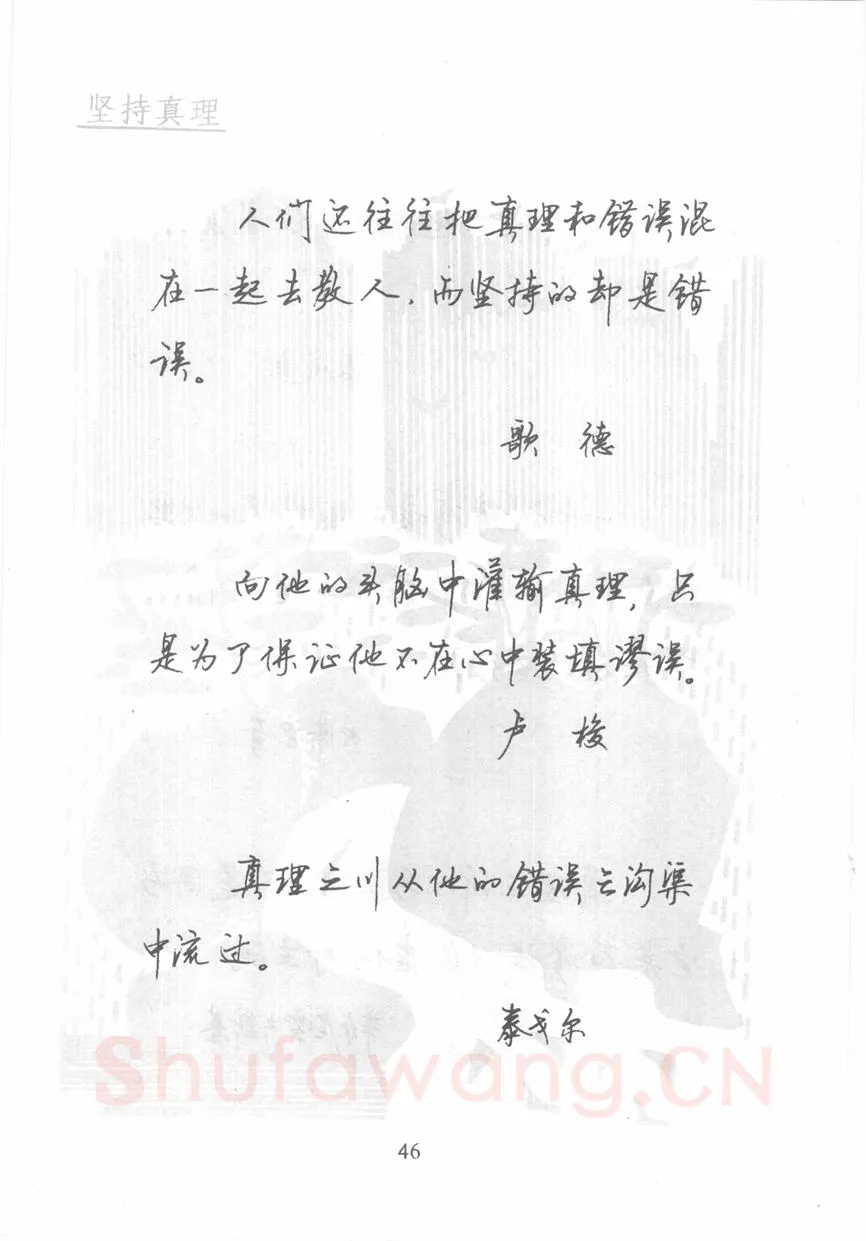 坚持真理
人们还往往把真理和错误混
在一起去教人，而坚持的却是错
误。
歌 德
向他的头脑中灌输真理，只
是为了保证他不在心中装填谬误。
卢 梭
真理之川从他的错误之沟渠
中流过。
泰戈尔
Shufawang.CN
46